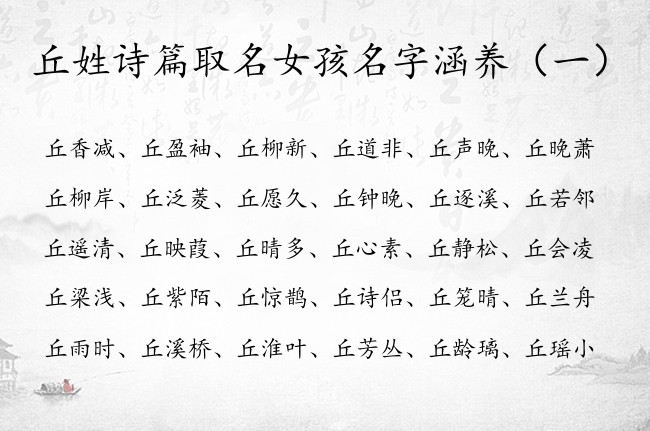 丘姓诗篇取名女孩名字涵养（一）
丘香减、丘盈袖、丘柳新、丘道非、丘声晚、丘晚萧
丘柳岸、丘泛菱、丘愿久、丘钟晚、丘逐溪、丘若邻
丘遥清、丘映葭、丘晴多、丘心素、丘静松、丘会凌
丘梁浅、丘紫陌、丘惊鹊、丘诗侣、丘笼晴、丘兰舟
丘雨时、丘溪桥、丘淮叶、丘芳丛、丘龄璃、丘瑶小